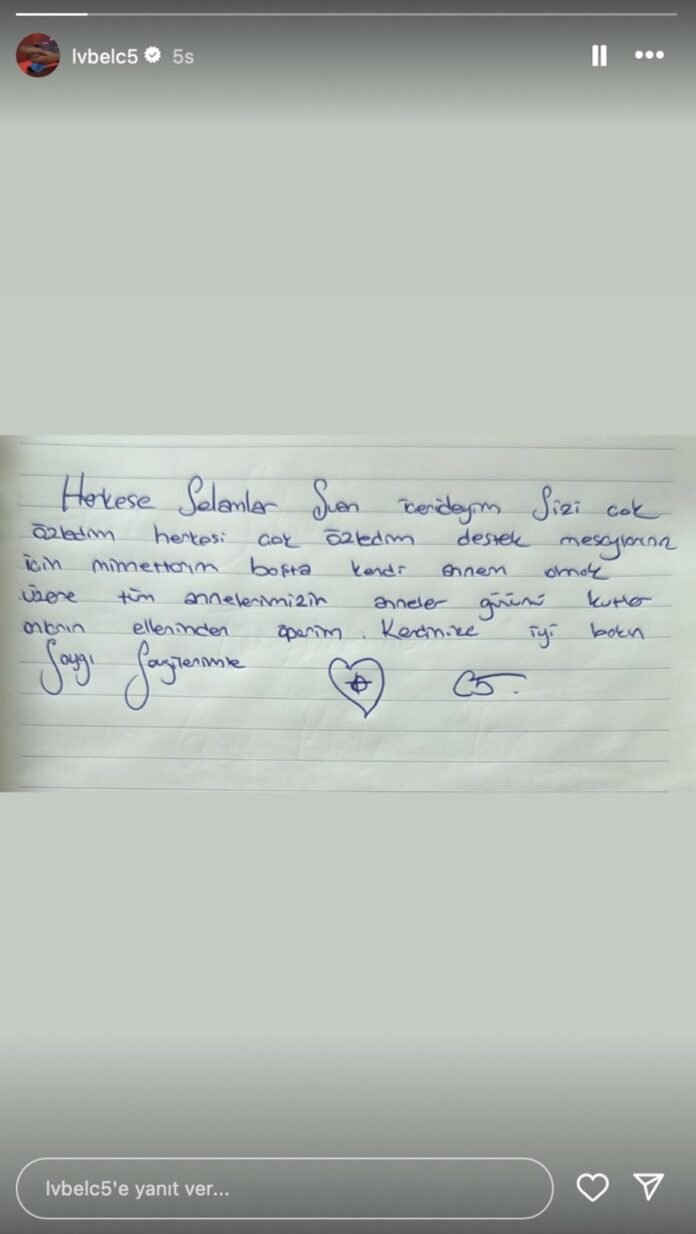 lvbelc5 5s
Herkese Selamlar Şuan içerdeyim Sizi çok
özledim herkesi çok özledim destek mesajlarınız
için minnettarım başta kendi annem olmak
üzere tüm annelerimizin anneler gününü kutlar
onların ellerinden öperim. Kendinize iyi bakın
Saygı Sevgilerimle C5.
lvbelc5'e yanıt ver...